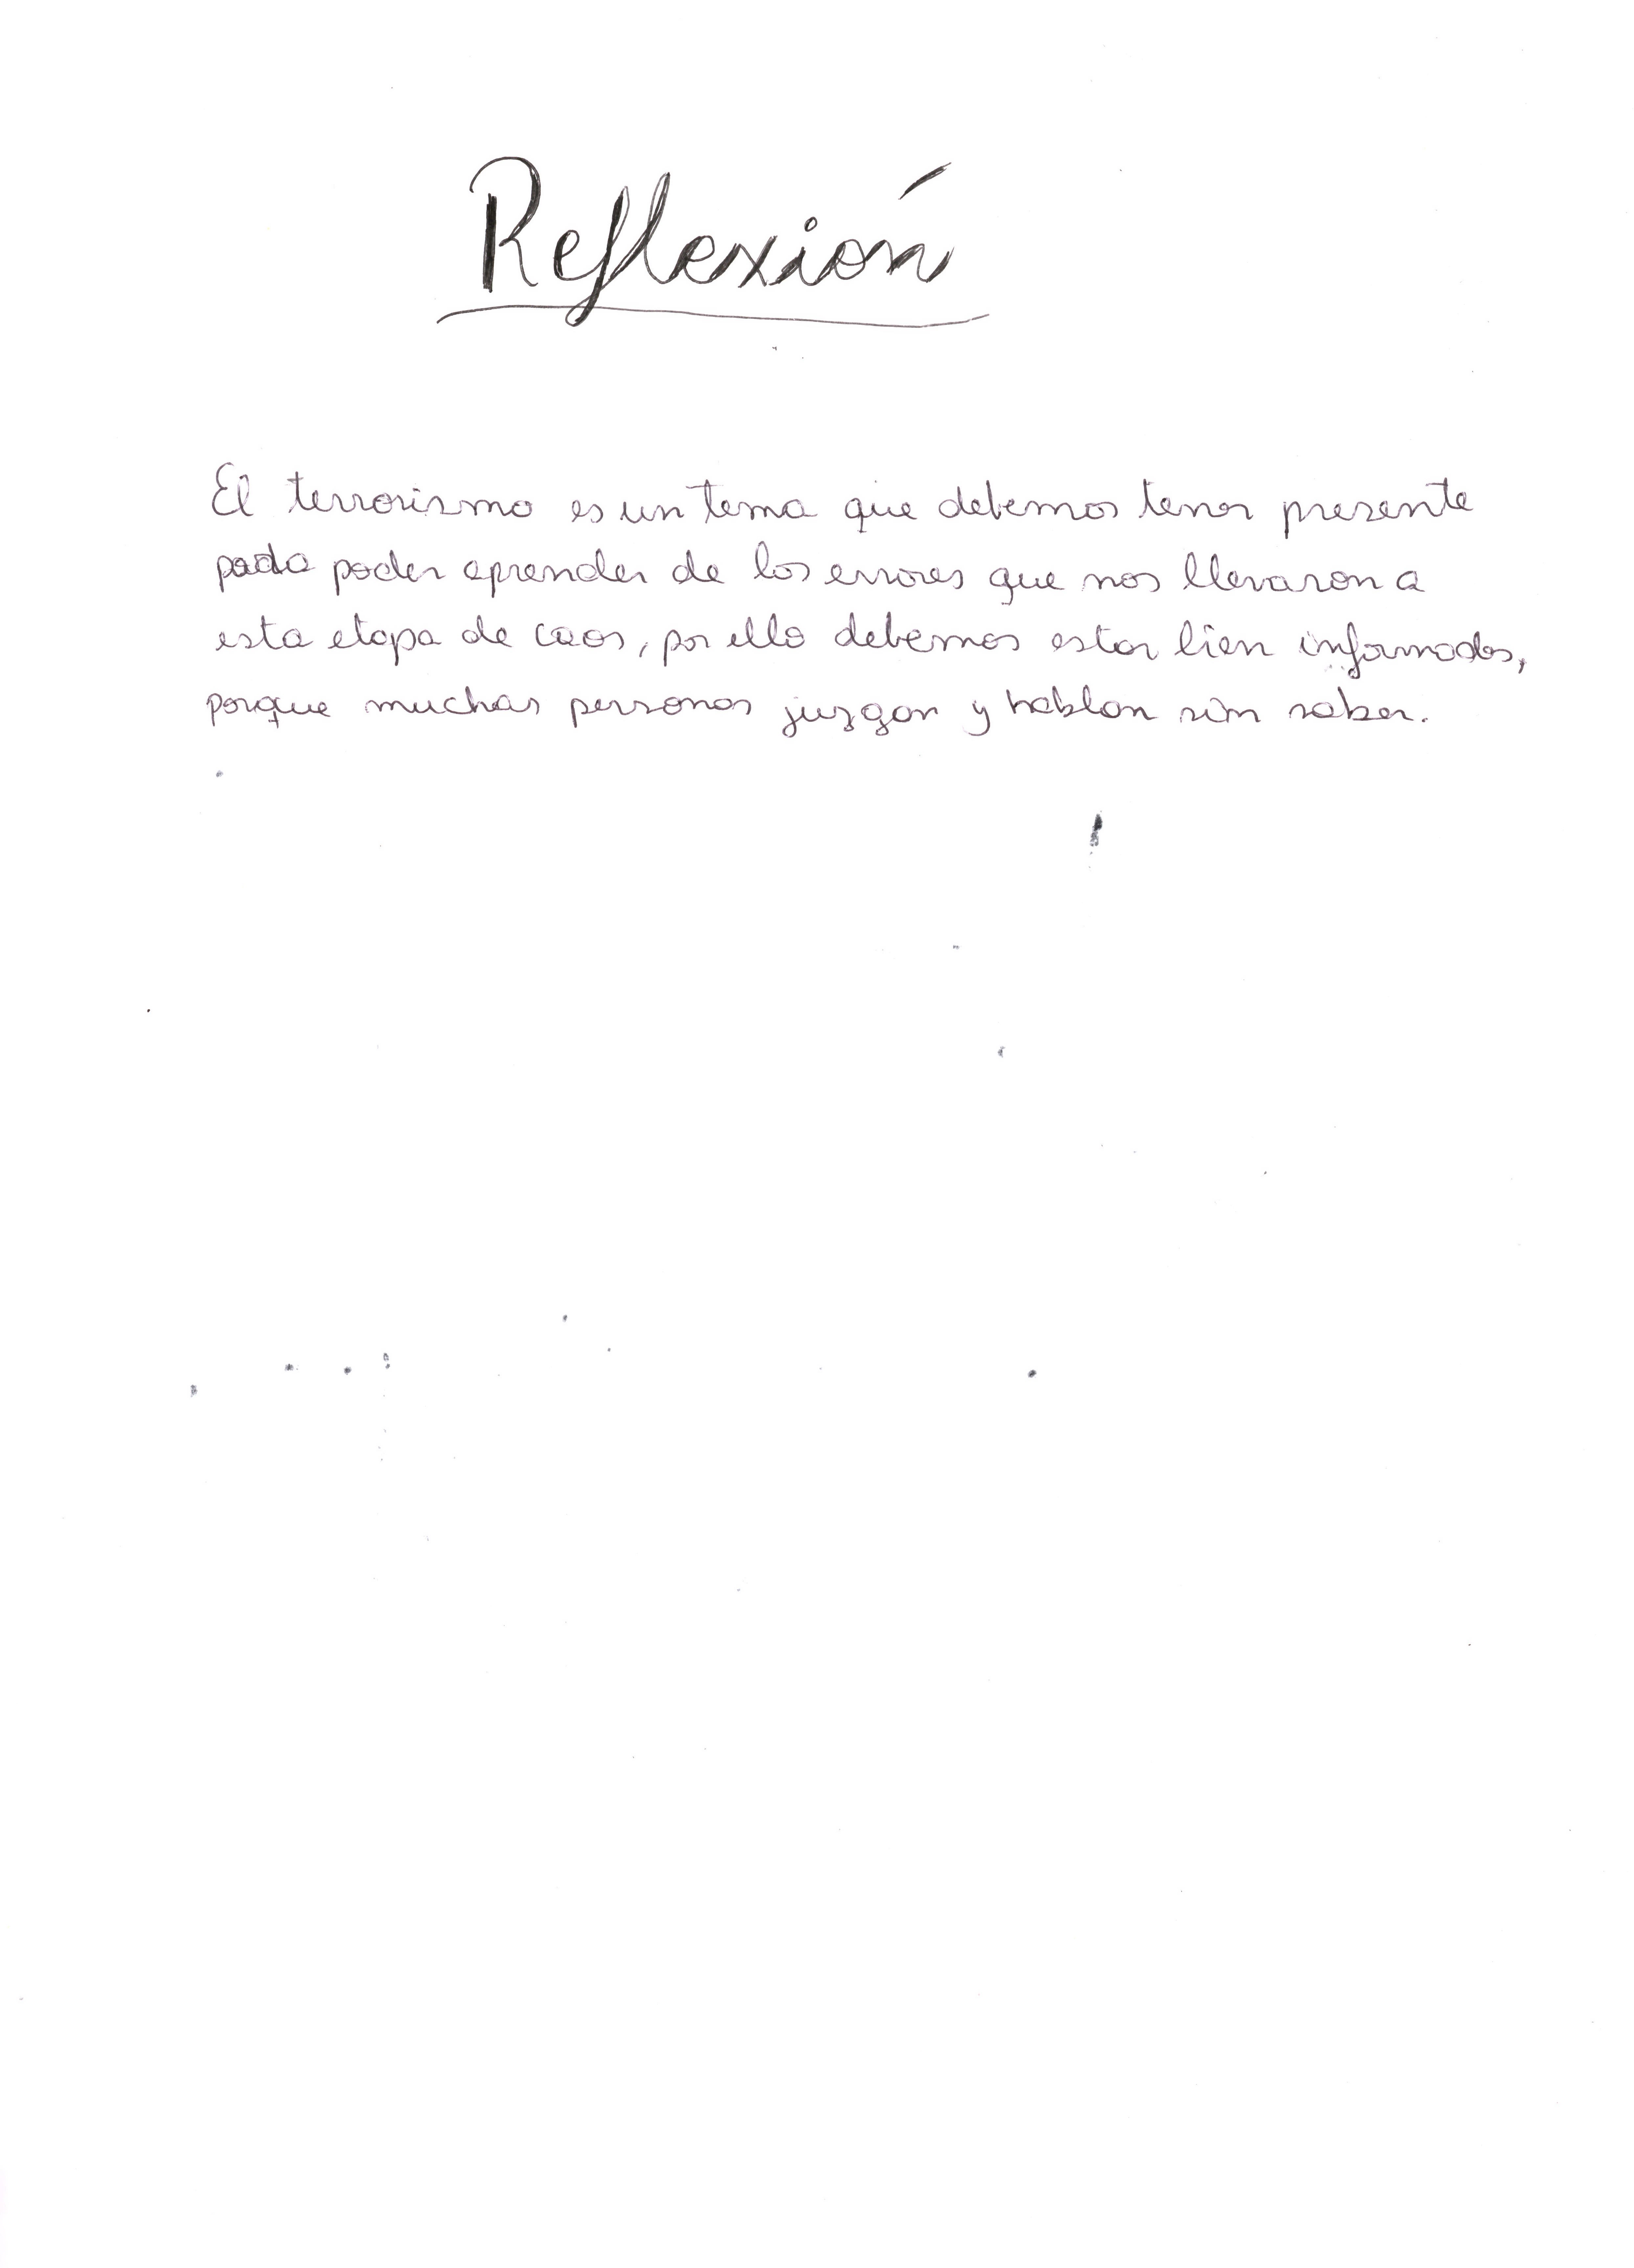 Reflexión
El terrorismo es un tema que debemos tener presente
pada poder aprender de los errores que nos llevaron a
esta etapa de caos, por ello debemos estar bien informados,
porque muchas personas juzgan y hablan sin saber.